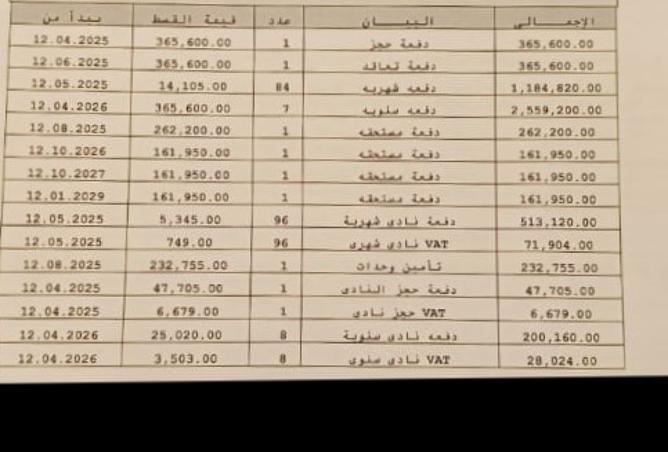 الإجمـــالى البيـــان عدد قيمة القسط يبدأ من
365,600.00 دفعة حجز 1 365,600.00 12.04.2025
365,600.00 دفعة تعاقد 1 365,600.00 12.06.2025
1,184,820.00 دفعه شهريه 84 14,105.00 12.05.2025
2,559,200.00 دفعه سنويه 7 365,600.00 12.04.2026
262,200.00 دفعة مستحقه 1 262,200.00 12.08.2025
161,950.00 دفعة مستحقه 1 161,950.00 12.10.2026
161,950.00 دفعة مستحقه 1 161,950.00 12.10.2027
161,950.00 دفعة مستحقه 1 161,950.00 12.01.2029
513,120.00 دفعة نادى شهرية 96 5,345.00 12.05.2025
71,904.00 VAT نادى شهرى 96 749.00 12.05.2025
232,755.00 تأمين وحدات 1 232,755.00 12.08.2025
47,705.00 دفعة حجز النادى 1 47,705.00 12.04.2025
6,679.00 VAT حجز نادى 1 6,679.00 12.04.2025
200,160.00 دفعه نادى سنوية 8 25,020.00 12.04.2026
28,024.00 VAT نادى سنوى 8 3,503.00 12.04.2026